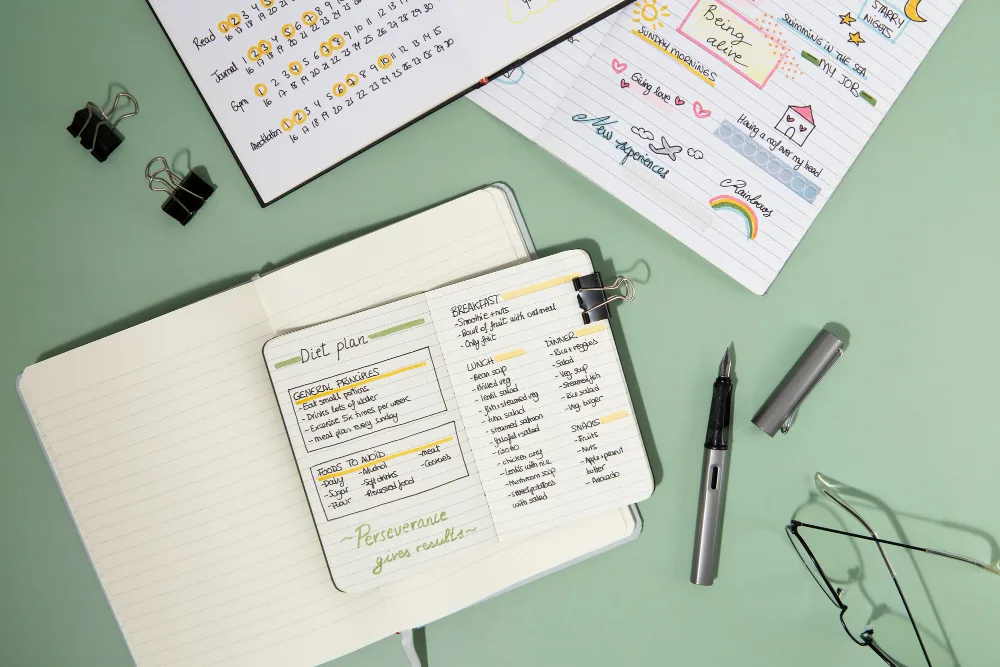 Read 1 2 3 4 5 6 7 8 9 10 11 12 13 14 15
16 17 18 19 20 21 22 23 24 25 26 27 28 29 30
Journal 1 2 3 4 5 6 7 8 9 10 11 12 13 14 15
16 17 18 19 20 21 22 23 24 25 26 27 28 29 30
Gym 1 2 3 4 5 6 7 8 9 10 11 12 13 14 15
16 17 18 19 20 21 22 23 24 25 26 27 28 29 30
Meditation 1 2 3 4 5 6 7 8 9 10 11 12 13 14 15
16 17 18 19 20 21 22 23 24 25 26 27 28 29 30
SUNDAY MORNINGS
Being
alive
SWIMMING IN THE SEA
STARRY
NIGHTS
MY JOB
Giving love
New experiences
Having a roof over my head
Rainbows
Diet plan
GENERAL PRINCIPLES
-Eat small portions
-Drinks lots of water
-Excersise six times per week
-meal plan every sunday
FOODS TO AVOID
-Dairy
-Sugar
-Flour
-Alcohol
-Soft drinks
-Processed food
-meat
-Cereals
~Perseverance
gives results~
BREAKFAST
-Smoothie + nuts
-Bowl of fruit with oatmeal
-Only fruit
LUNCH
-Bean soup
-Grilled veg
-lentil salad
-fish+steamed veg
-tuna salad
-steamed salmon
-falafel+salad
-risotto
-chicken curry
-lentils with rice
-Mushroom soup
-sweet potatoes
with salad
DINNER
-Rice+veggies
-Salad
-Veg soup
-Steamed fish
-Rice salad
-Veg burger
SNACKS
-Fruits
-Nuts
-Apple+peanut
butter
-Avocado